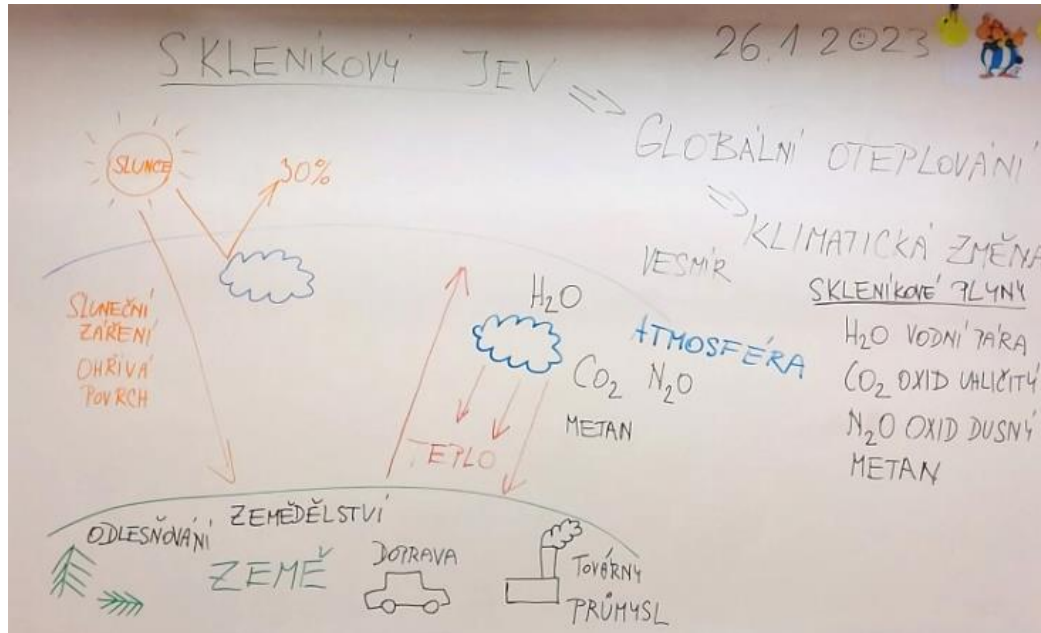 SKLENÍKOVÝ JEV
26.1 2023
⇒ GLOBÁLNÍ OTEPLOVÁNÍ
⇒ KLIMATICKÁ ZMĚNA
SLUNCE
30%
SLUNEČNÍ
ZÁŘENÍ
OHŘÍVÁ
POVRCH
VESMÍR
ATMOSFÉRA
H₂O
CO₂ N₂O
METAN
TEPLO
SKLENÍKOVÉ PLYNY
H₂O VODNÍ PÁRA
CO₂ OXID UHLIČITÝ
N₂O OXID DUSNÝ
METAN
ODLESŇOVÁNÍ
ZEMĚDĚLSTVÍ
ZEMĚ
DOPRAVA
TOVÁRNY
PRŮMYSL